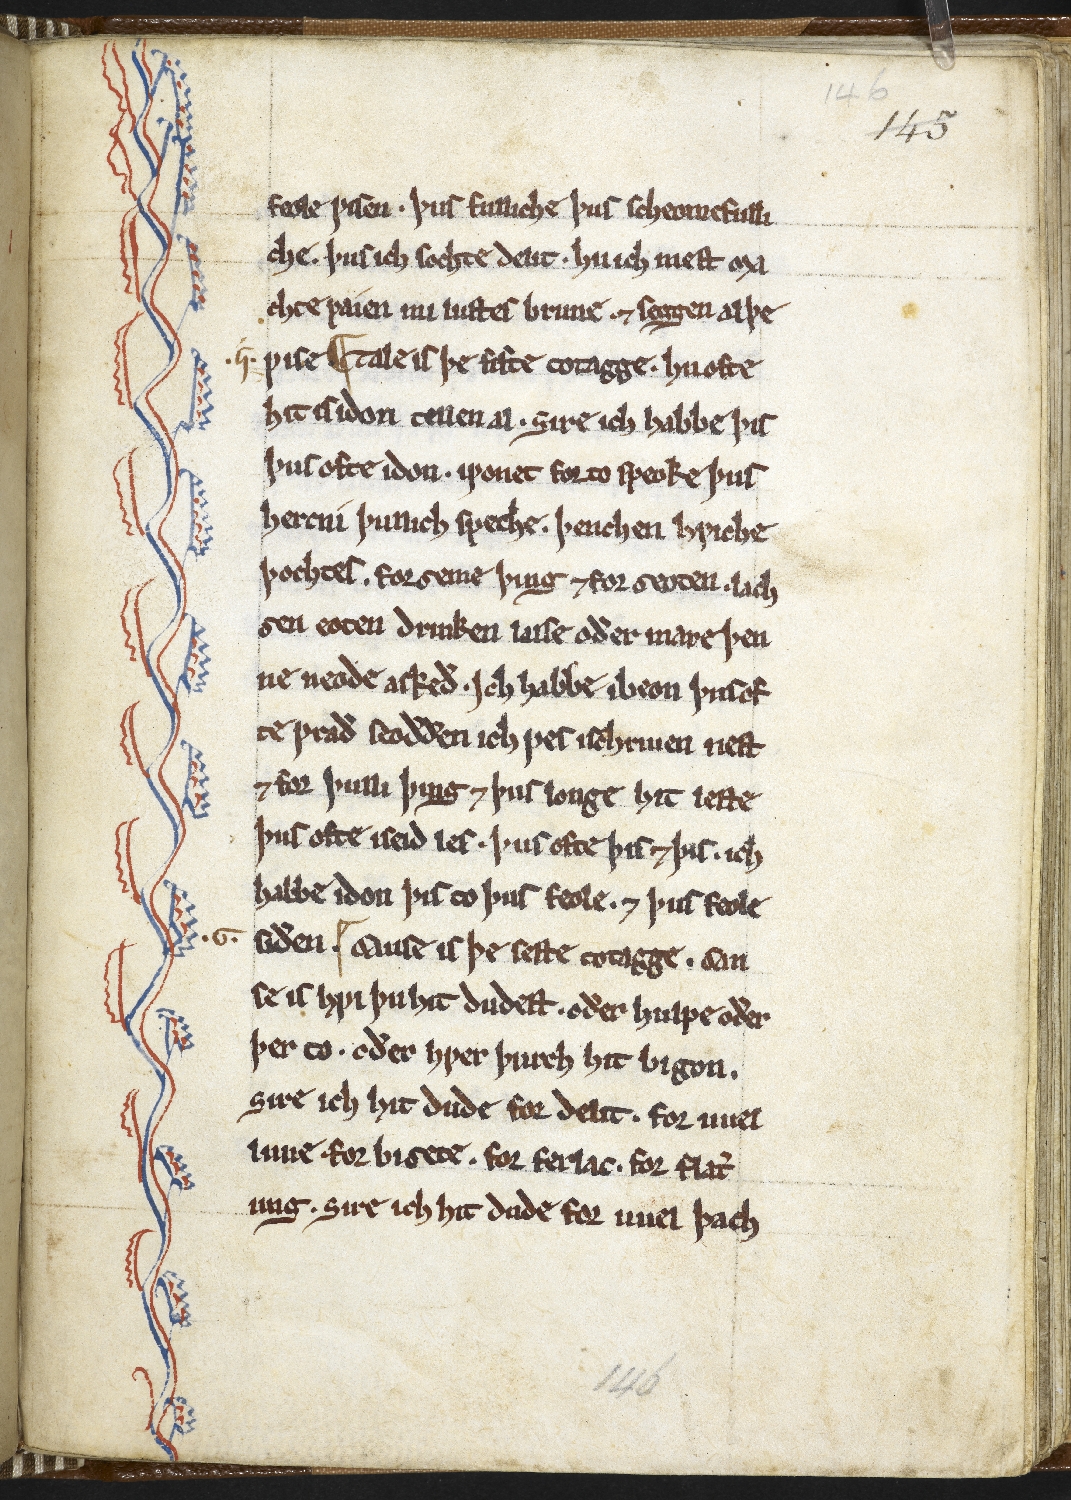 146
145
feole ƿisen · þus fulliche þus scheomefulli
che. þus ich sochte delit · hu ich mest
chte paien mi lustes brune · ⁊ seggen al þe
·h̄· ƿise ¶ Tale is þe fifte totagge · hu ofte
hit is idon tellen al · Sire ich habbe þis
þus ofte idon · iƿonet forto speoke þus
hercni þullich speche · þenchen hƿiche
þochtes . for ȝeme þing ⁊ for ȝeoten · lach
ȝen eoten drinken lasse oðer mare þen
ne neode askeð · Ich habbe ibeon þus of
te ƿrað seoððen ich ƿes ischriuen nest
⁊ for þulli þing ⁊ þus longe hit leste
þus ofte iseid les · þus ofte þis ⁊ þis · ich
habbe idon þis to þus feole · ⁊ þus feole
siðen · ¶ Cause is þe seste totagge · Cau
se is hƿi þu hit dudest · oðer hulpe oðer
þer to · oðer hƿer þurch hit bigon .
Sire ich hit dude for delit · for uuel
luue · for biȝete . for ferlac · for flat̉
ung · Sire ich hit dude for uuel þach
146